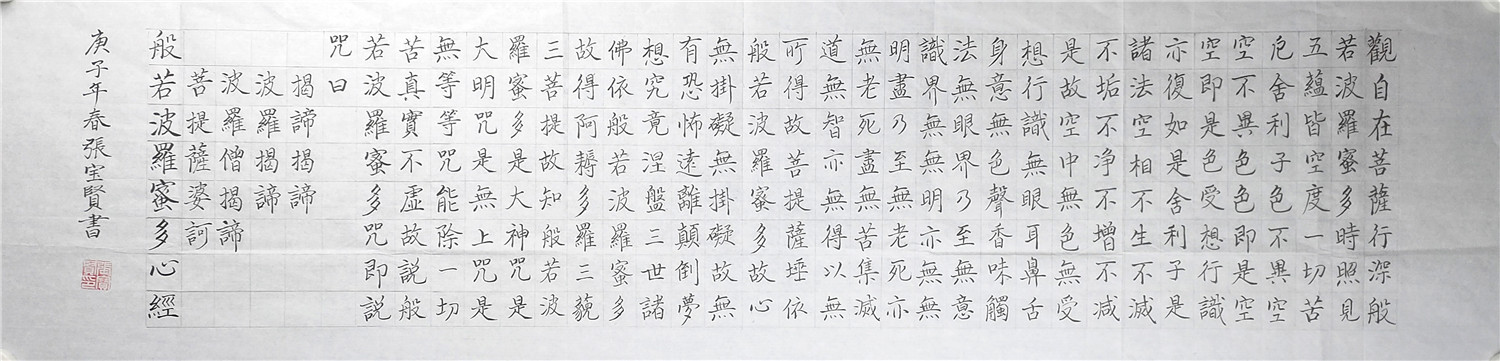 觀自在菩薩行深般
若波羅蜜多時照見
五蘊皆空度一切苦
厄舍利子色不異空
空不異色色即是空
空即是色受想行識
亦復如是舍利子是
諸法空相不生不滅
不垢不净不增不减
是故空中無色無受
想行識無眼耳鼻舌
身意無色聲香味觸
法無眼界乃至無意
識界無無明亦無無
明盡乃至無老死亦
無老死盡無苦集滅
道無智亦無得以無
所得故菩提薩埵依
般若波羅蜜多故心
無掛礙無掛礙故無
有恐怖遠離顛倒夢
想究竟涅盤三世諸
佛依般若波羅蜜多
故得阿耨多羅三藐
三菩提故知般若波
羅蜜多是大神咒是
大明咒是無上咒是
無等等咒能除一切
苦真實不虛故説般
若波羅蜜多咒即説
咒曰
揭諦揭諦
波羅揭諦
波羅僧揭諦
菩提薩婆訶
般若波羅蜜多心經
庚子年春張宝賢書